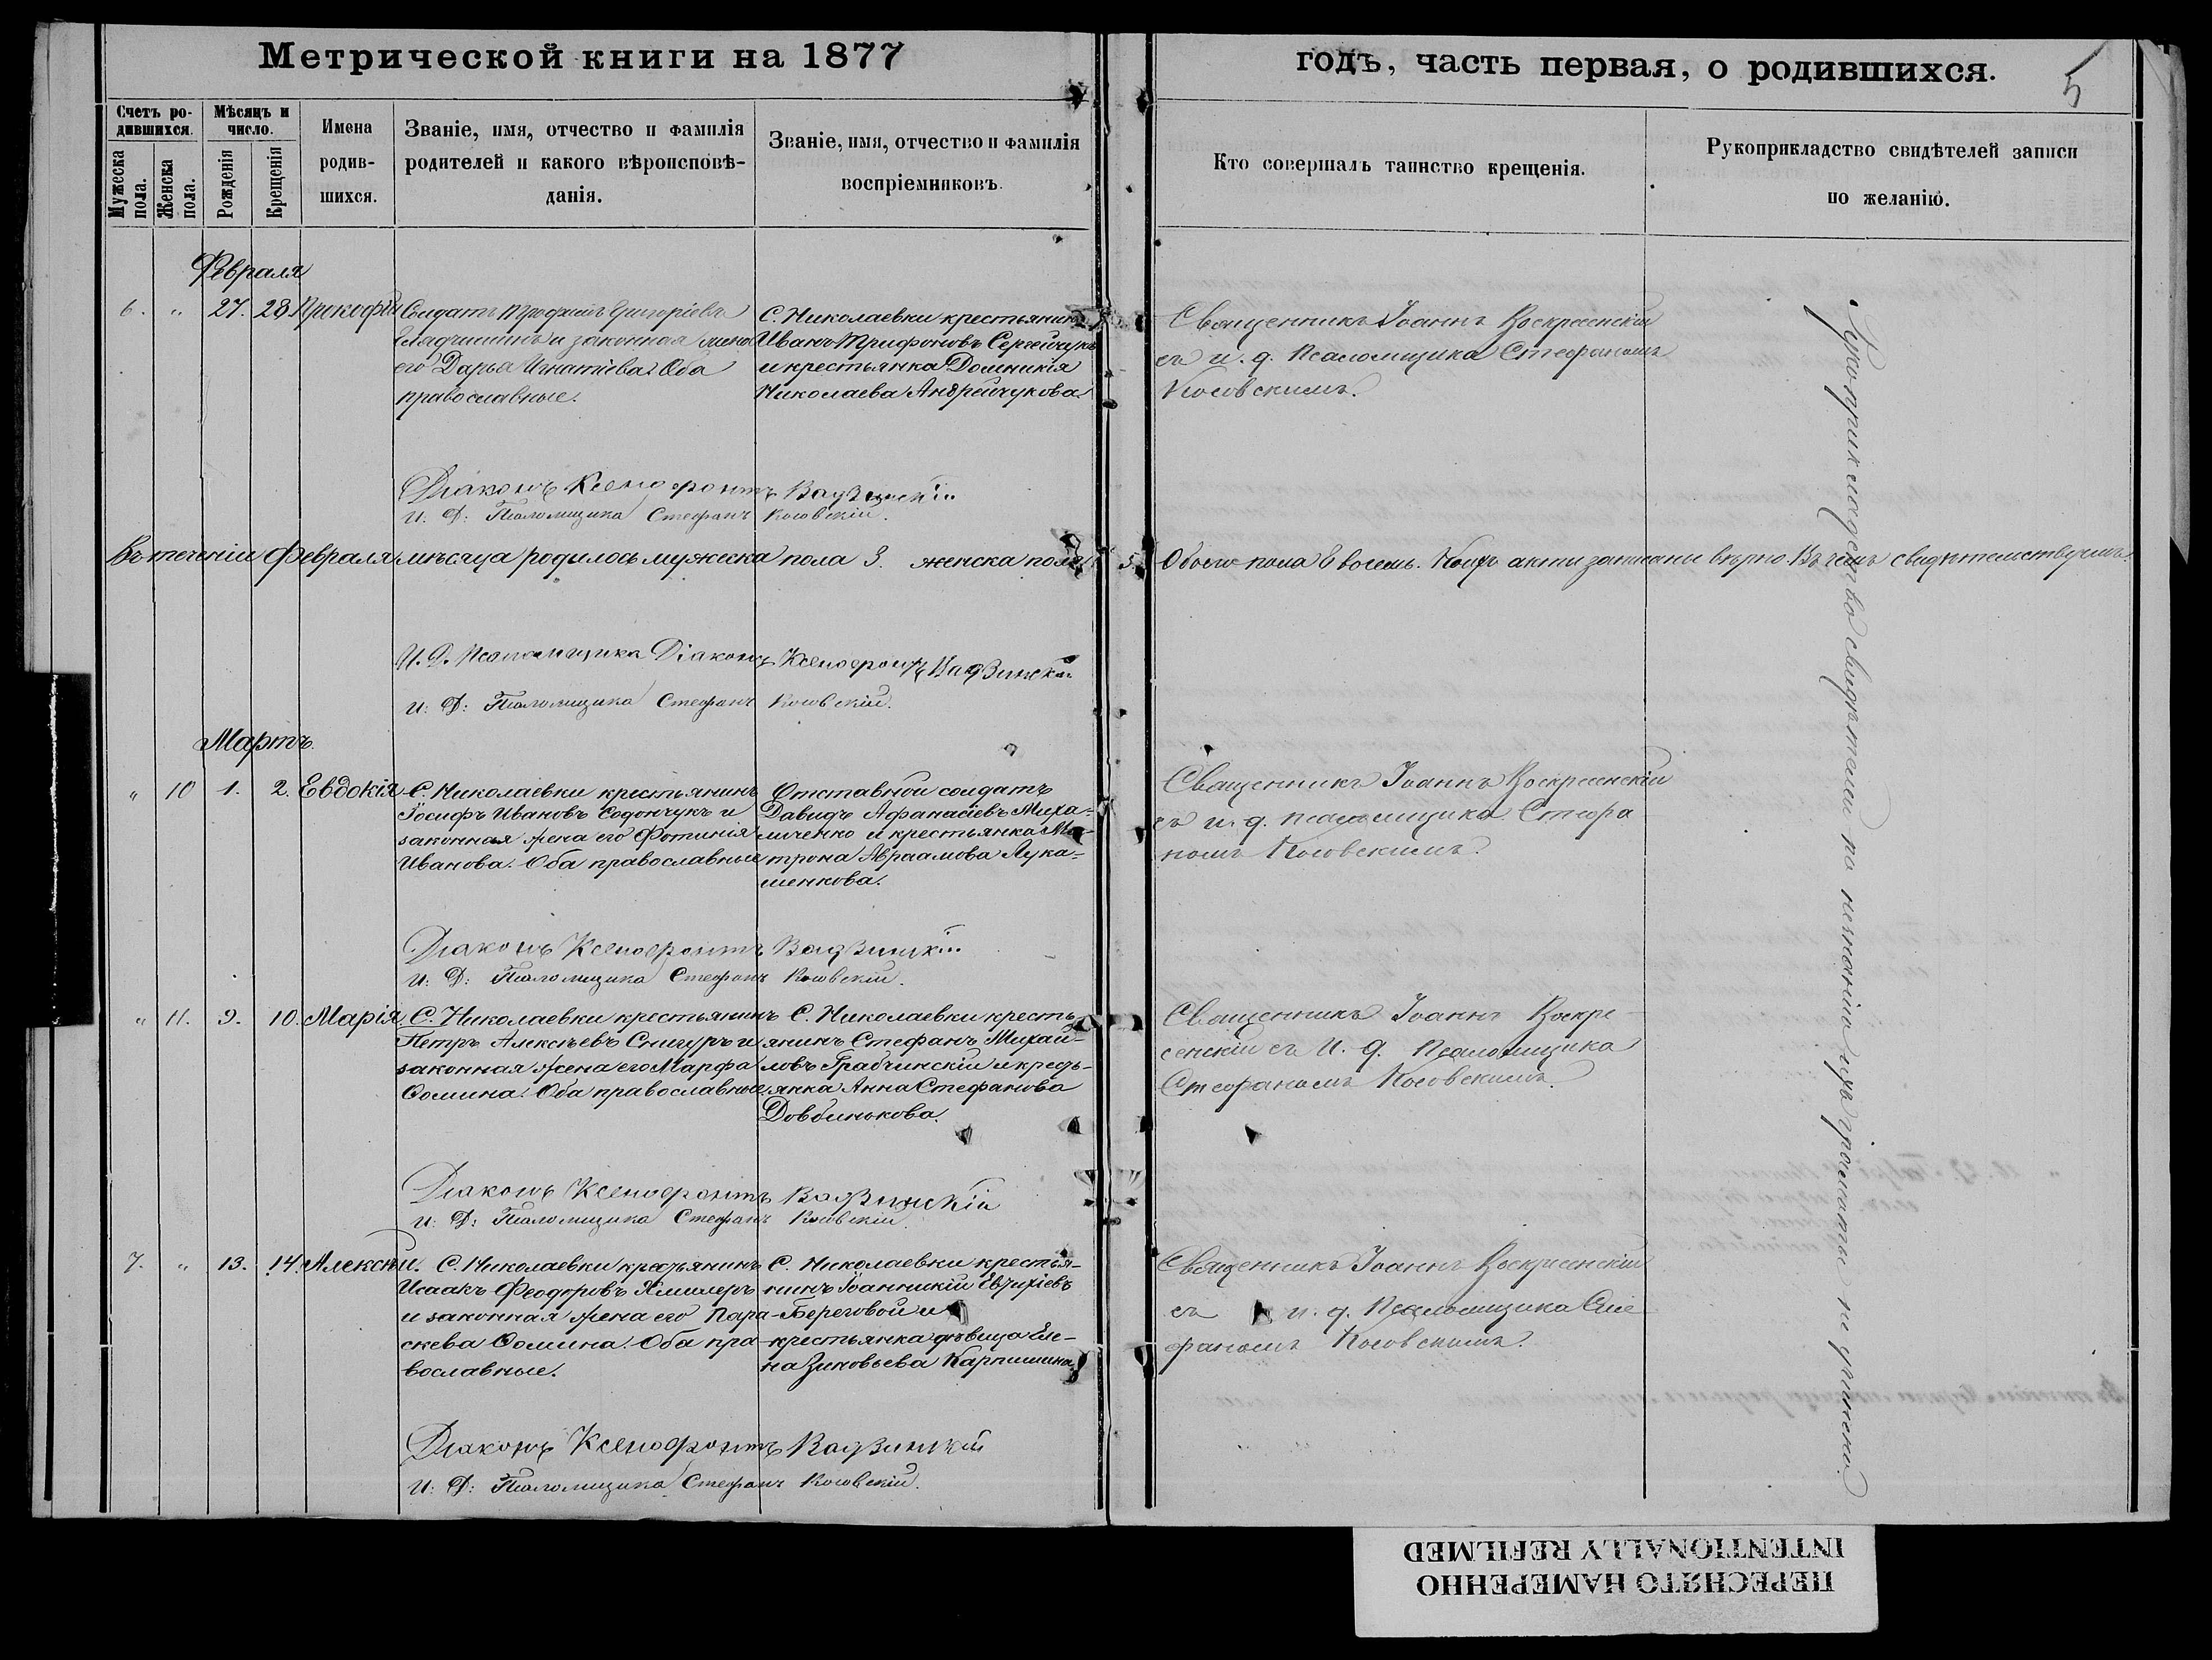 Метрической книги на 1877
годъ, часть первая, о родившихся.
5
Счетъ ро-
дившихся.
Мужеска
пола.
Женска
пола.
Мѣсяцъ и
число.
Рожденія
Крещенія
Имена
родив-
шихся.
Званіе, имя, отчество и фамилія
родителей и какого вѣроисповѣ-
данія.
Званіе, имя, отчество и фамилія
воспріемниковъ.
Кто совершалъ таинство крещенія.
Рукоприкладство свидѣтелей записи
по желанію.
Февраля
6. " 27. 28. Прокофій
Солдатъ Григоріевъ
и законная жена
его Дарья Игнатіева. Оба
православные.
С. Николаевки крестьянинъ
Иванъ Трифоновъ Сергейчукъ
и крестьянка Домникія
Николаева Андрейчукова.
Священникъ Іоаннъ Воскресенскій
съ и. д. Псаломщика Стефаномъ
Косовскимъ.
Діаконъ Ксенофонтъ
И: Д: Псаломщика Стефанъ Косовскій.
Въ теченіи Февраля мѣсяца родилось мужеска пола 3. женска пола 5. Обоего пола 8 восемь. акты записаны вѣрно. Въ чемъ свидѣтельствуемъ.
И. Д. Псаломщика Діаконъ Ксенофонтъ
И: Д: Псаломщика Стефанъ Косовскій.
Мартъ.
" 10 1. 2. Евдокія
С. Николаевки крестьянинъ
Іосифъ Ивановъ Содончукъ и
законная жена его Фотинія
Иванова. Оба православные
Отставной солдатъ
Давидъ Афанасіевъ Миха-
личенко и крестьянка Ма-
трона Авраамова Лука-
шенкова.
Священникъ Іоаннъ Воскресенскій
съ и. д. псаломщика Стефа
номъ Косовскимъ.
Діаконъ Ксенофонтъ
И: Д: Псаломщика Стефанъ Косовскій.
" 11. 9. 10. Марія
С. Николаевки крестьянинъ
Петръ Алексѣевъ Снигуръ и
законная жена его Марфа
Ѳомина. Оба православные.
С. Николаевки кресть-
янинъ Стефанъ Михай-
ловъ Грабчинскій и кресть-
янка Анна Стефанова
Довбинькова.
Священникъ Іоаннъ Воскре-
сенскій съ И. д. Псаломщика
Стефаномъ Косовскимъ.
Діаконъ Ксенофонтъ
И: Д: Псаломщика Стефанъ Косовскій.
7. " 13. 14. Алексѣй.
С. Николаевки крестьянинъ
Исаакъ Феодоровъ
и законная жена его Пара-
скева Ѳомина. Оба пра-
вославные.
С. Николаевки крестья-
нинъ Іоанникій Евтихіевъ
Береговой и
крестьянка дѣвица Еле-
на Зиновьева Карпишина.
Священникъ Іоаннъ Воскресенскій
съ и. д. Псаломщика Сте
фаномъ Косовскимъ.
Діаконъ Ксенофонтъ
И: Д: Псаломщика Стефанъ Косовскій.
Рукоприкладство свидѣтелей по незнанію ихъ грамоты не учинено.
ПЕРЕСНЯТО НАМЕРЕННО
INTENTIONALLY REFILMED